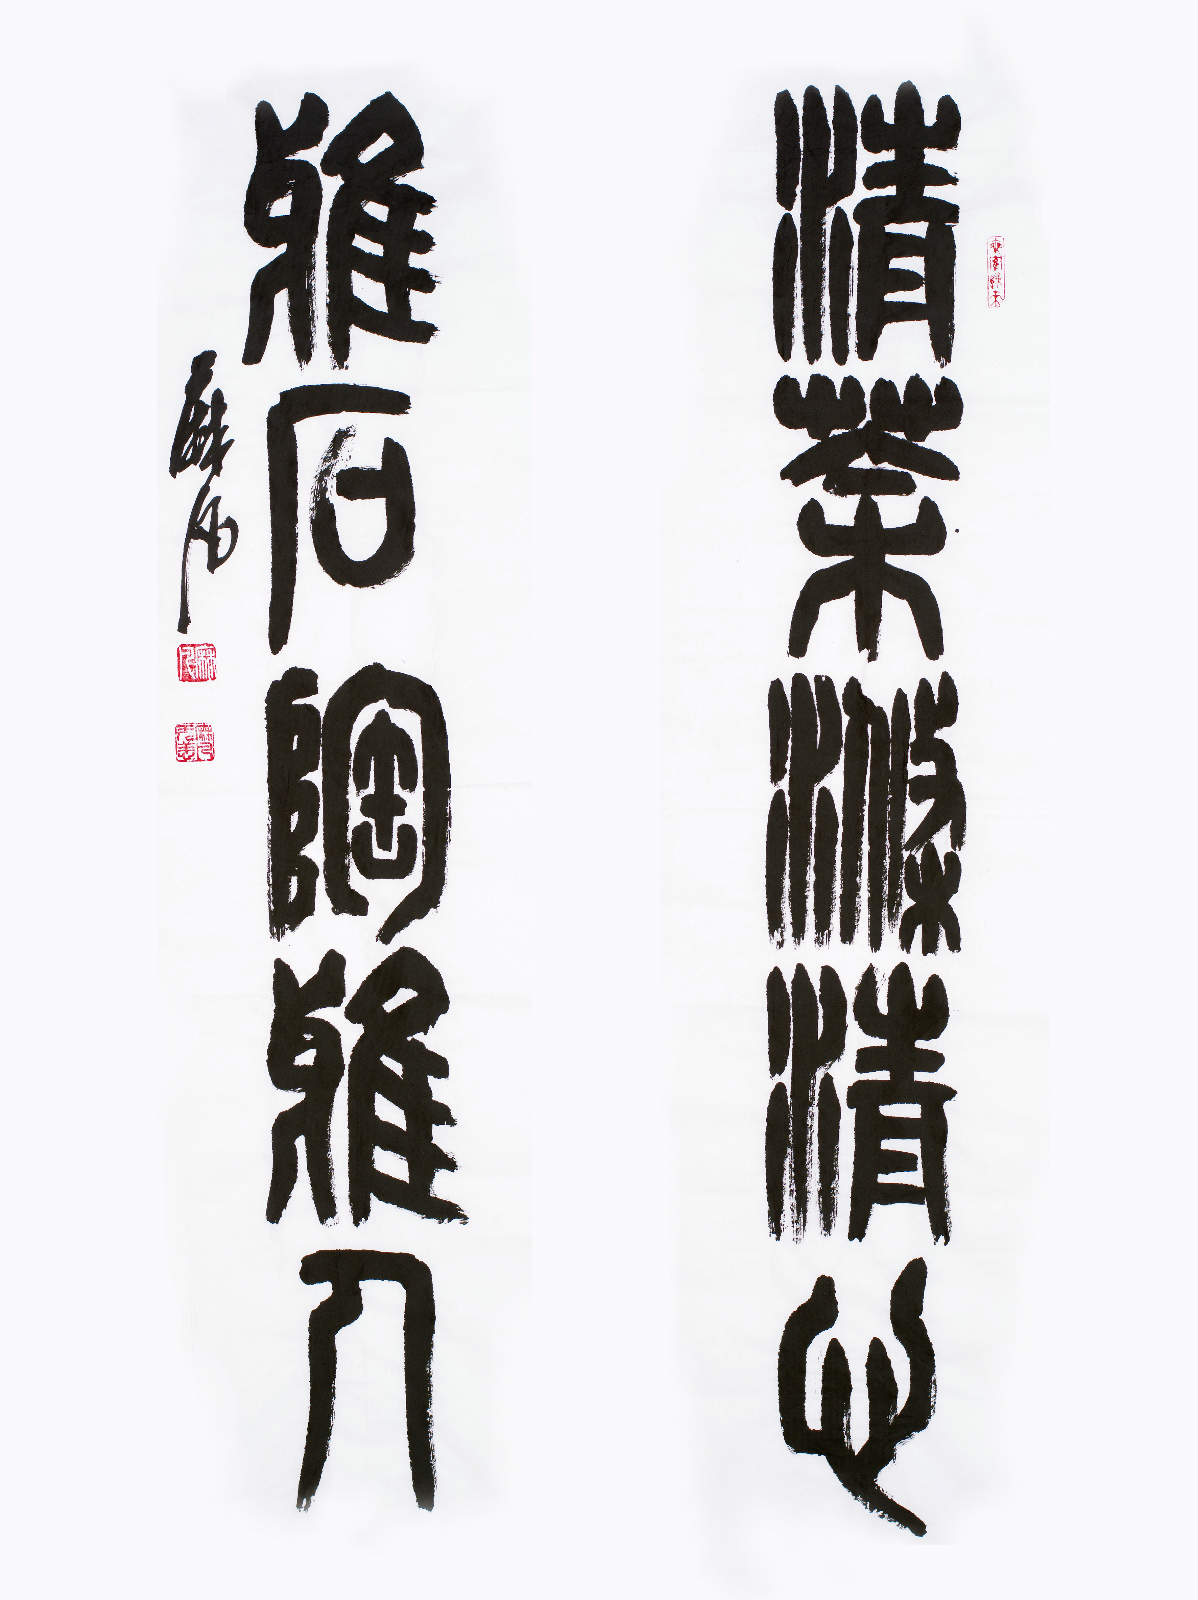 清茶滌清心
雅石陶雅人